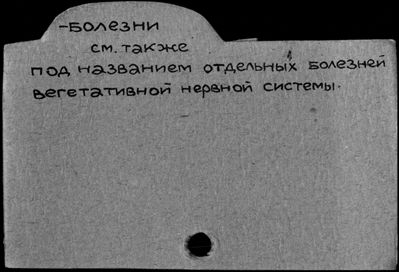 -Болезни
см. также
под названием отдельных болезней
вегетативной нервной системы.